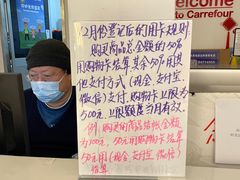 Welcome
to Carrefour
12月份登记后的用卡规则
购买商品总金额的50%
用购物卡结算其余50%用其
他支付方式(现金 支付宝
微信)支付,购物卡上限为
500元上限当月有效。
例,购买的商品结帐金额
为100元,50元用购物卡结算
50元用(现金 支付宝 微信)
结算